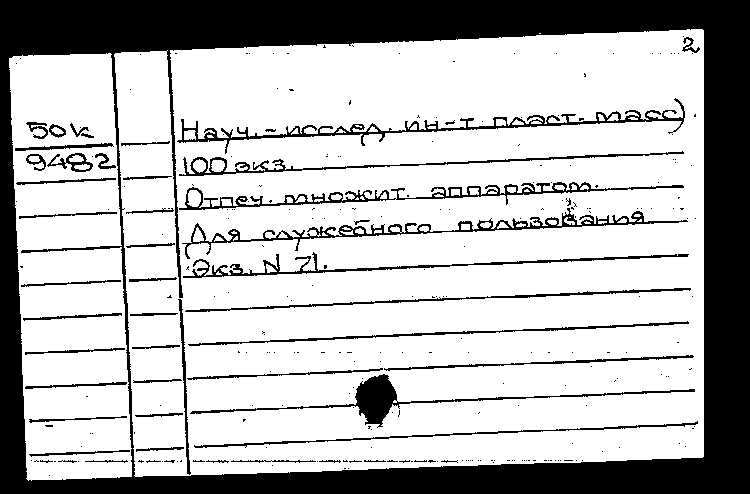 2
50к Науч.-исслед. ин-т пласт. масс)
9482 100 экз.
Отпеч. множит. аппаратом.
Для служебного пользования
Экз. N 71.